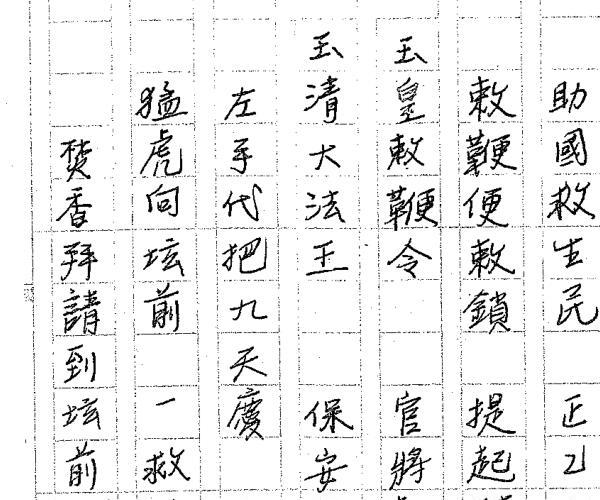 助國救生民　正乙
敕鞭便敕鎖　提起
玉皇敕鞭令　官將
玉清大法王　保安
左手代把九天慶
猛虎向坛前　一救
焚香拜請到坛前